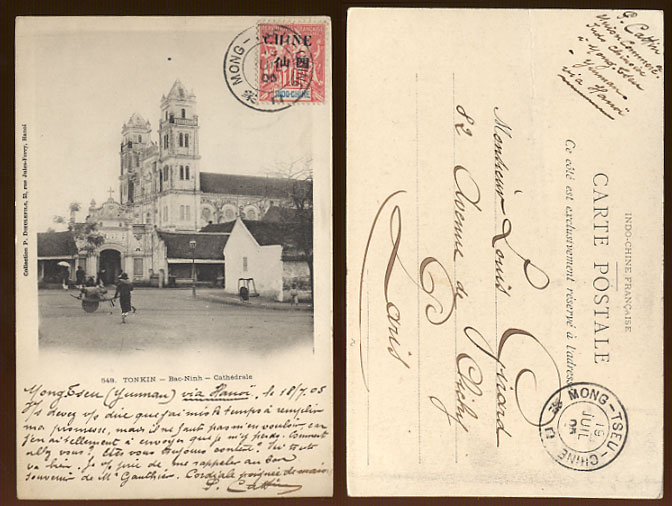 MONG-TSEU
CHINE
仙 四
10
INDO-CHINE
Collection P. Dieulefils, 53, rue Jules-Ferry, Hanoi
548. TONKIN — Bac-Ninh — Cathédrale
Mong Tseu (Yunnan) via Hanoï, le 18/7. 05
V/s devez v/s dire que j'ai mis le temps à remplir
ma promesse, mais il ne faut pas m'en vouloir, car
j'en ai tellement à envoyer que je m'y perds. Comment
allez vous? Etes vous toujours content? Ici tout
va bien. Je v/s prie de me rappeler au bon
souvenir de Mr Gauthier. Cordiale poignée de mains
G. Cattin
G. Cattin
Union Commerciale
Indo Chinoise
à Mong Tseu
Yunnan
via Hanoï
INDO-CHINE FRANÇAISE
CARTE POSTALE
Ce côté est exclusivement réservé à l'adresse
Monsieur Louis Girard
82 Avenue de Clichy
Paris
MONG-TSEU-CHINE
19
JUIL
05